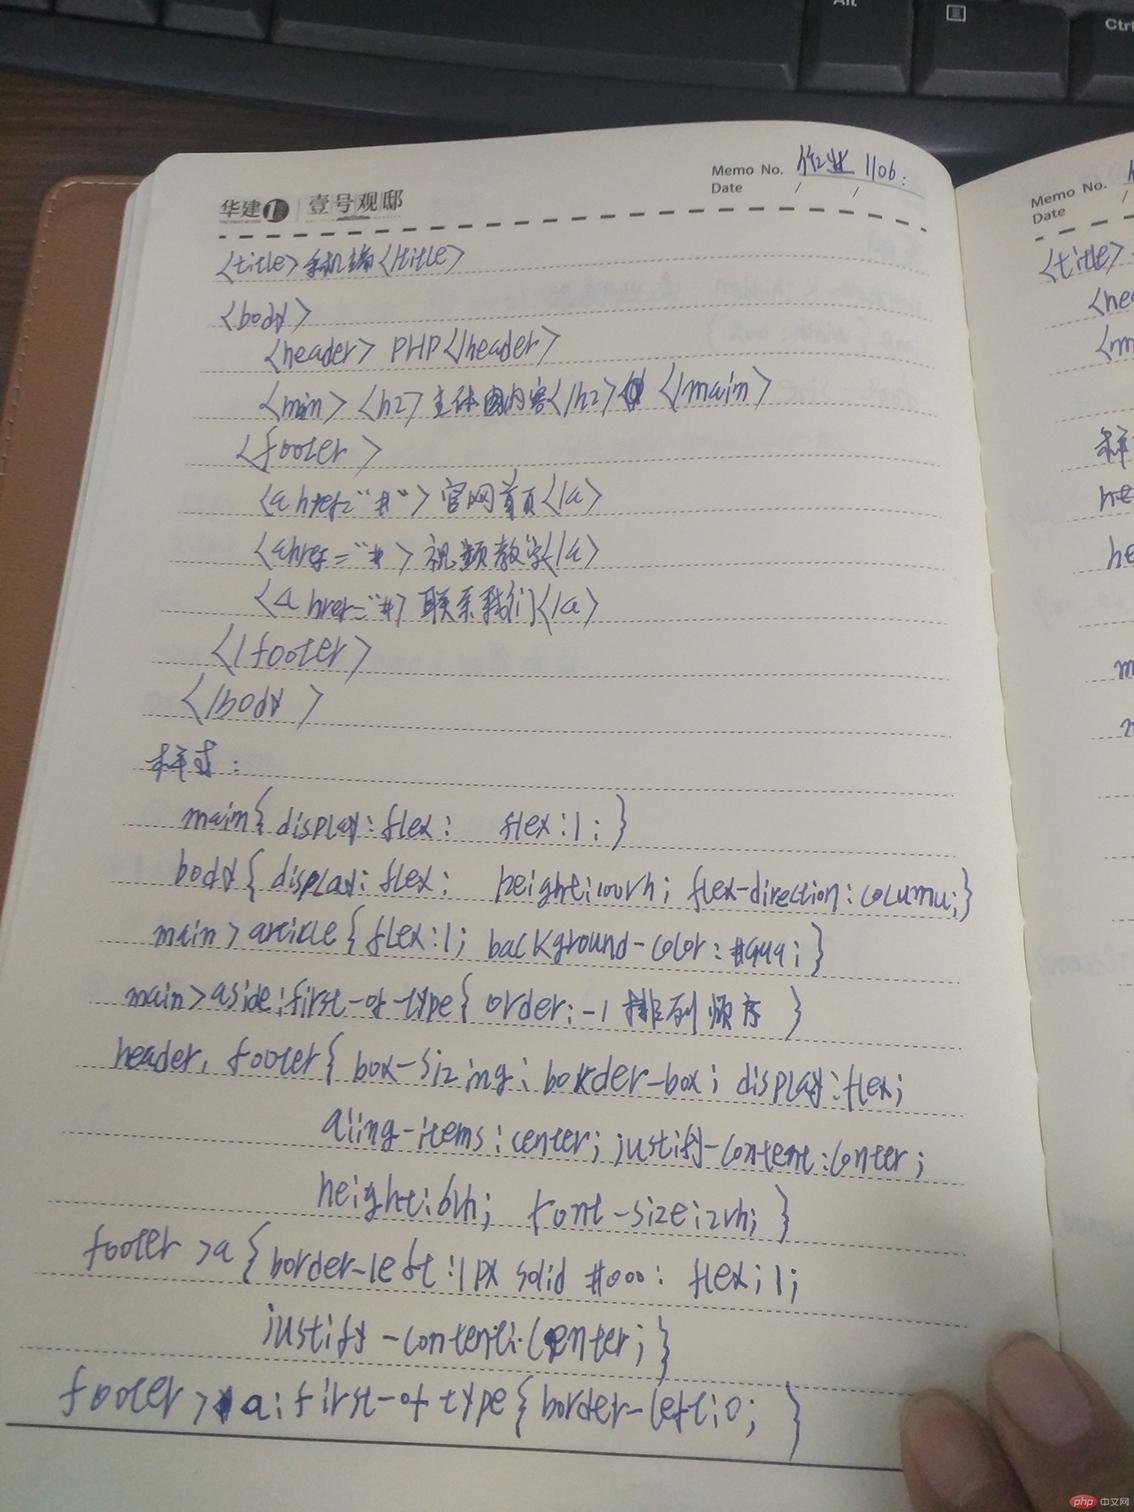 Alt
Ctrl
华建1 壹号观邸
Memo No. 作业 1106:
Date / /
<title>手机端</title>
<body>
<header> PHP</header>
<min> <h2>主体内容</h2> </main>
<footer>
<a href="#"> 官网首页</a>
<ahref="#> 视频教学</a>
<a href="#> 联系我们</a>
</footer>
</body>
样式:
main{ display: flex: flex:1; }
body{ display: flex: height:100vh; flex-direction: columu;}
main>article{ flex:1; background-color: #999; }
main>aside:first-of-type{ order:-1 排列顺序 }
header, footer{ box-sizing: border-box; display:flex;
aiing-items:center; justify-content:conter;
height:6vh; font-size:2vh; }
footer>a{ border-left:1px solid #000: flex;1;
justify-content:center;}
footer>a:first-of type{ border-left:0; }
Memo No.
Date /
<title>
<he
<m
样
he
he
m
php 中文网